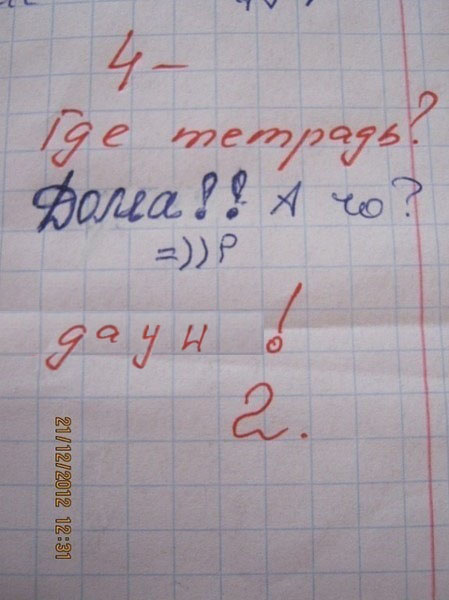 4-
Где тетрадь?
Дома!! А чо?
=))Р
даун!
2.
21/12/2012 12:31